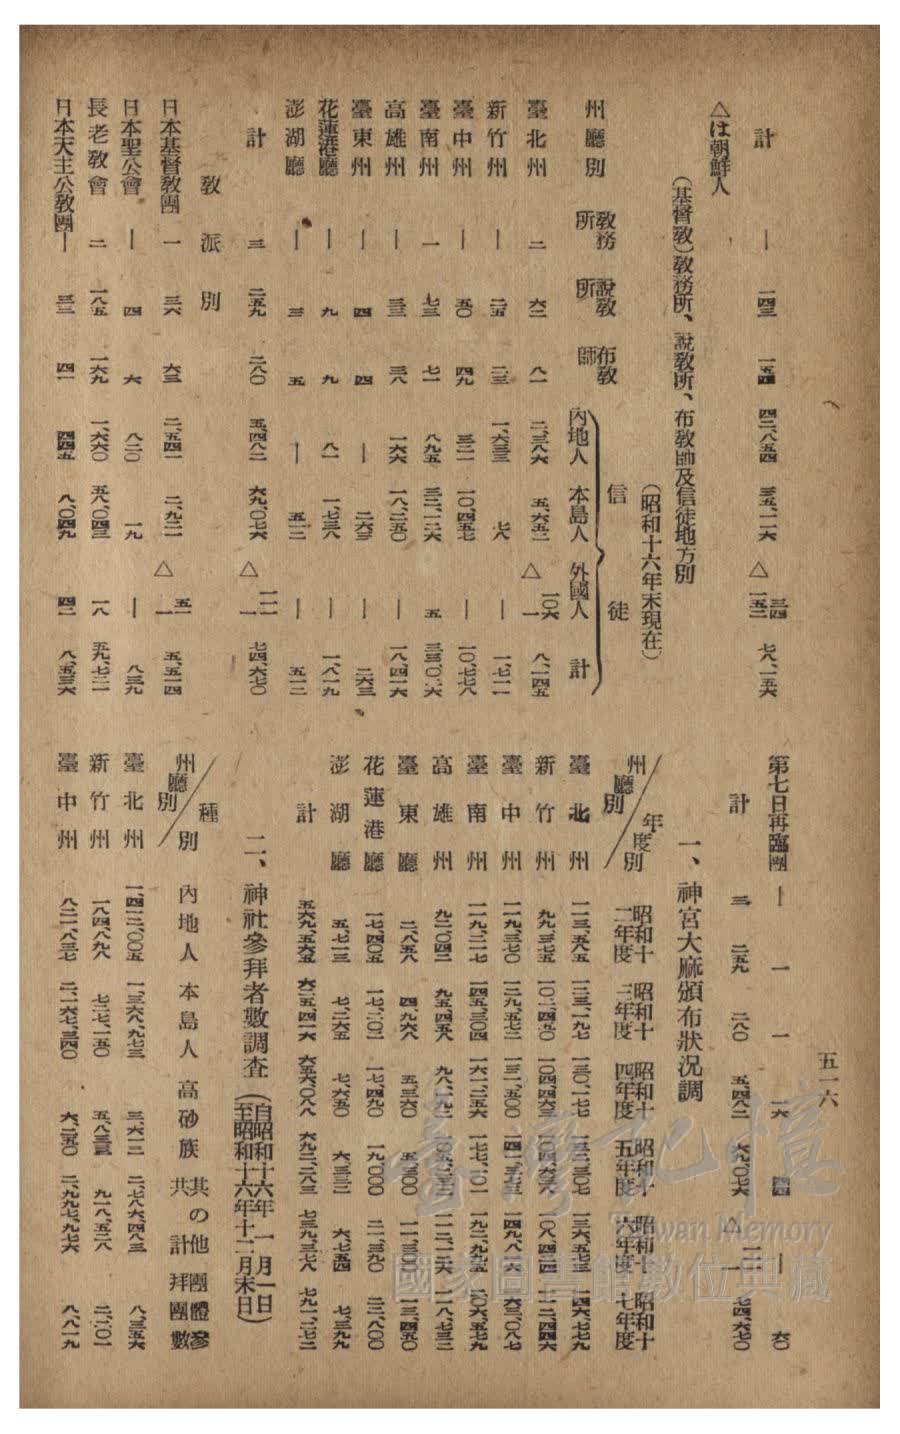 五一六
計 ― 一四三 一五四 四二、八五四 三五、一一六 △三四 一五二 七八、一五六
△は朝鮮人
(基督教)教務所、說教所、布教師及信徒地方別
(昭和十六年末現在)
州廳別 教務所 說教所 布教師 信徒 內地人 本島人 外國人 計
臺北州 二 六二 八一 二、三八六 五、六五二 △一 一〇六 八、一四五
新竹州 ― 二五 二三 一、六三三 七八 ― 一、七一一
臺中州 ― 五〇 四九 三二一 一〇、四五七 ― 一〇、七七八
臺南州 一 七三 七一 八九五 三二、一二六 五 三三、〇二六
高雄州 ― 三三 三八 一六六 一八、二五〇 ― 一八、四一六
臺東州 ― 四 四 ― 二六三 ― 二六三
花蓮港廳 ― 九 九 八一 一、七三八 ― 一、八一九
澎湖廳 ― 三 五 ― 五一二 ― 五一二
計 三 二五九 二八〇 五、四八二 六九、〇七六 △一 一一一 七四、六七〇
教派別
日本基督教團 一 三六 六三 二、五四一 二、九二一 △一 五一 五、五一四
日本聖公會 ― 四 六 八二〇 一九 ― 八三九
長老教會 二 一八五 一六九 一、六六〇 五八、〇四三 一八 五九、七二一
日本天主公教團 ― 三三 四一 四四五 八、〇四九 四二 八、五三六
第七日再臨團 ― 一 一 一六 四四 ― 六〇
計 三 二五九 二八〇 五、四八二 六九、〇七六 △一 一一一 七四、六七〇
一、神宮大麻頒布狀況調
州廳別 年度別 昭和十二年度 昭和十三年度 昭和十四年度 昭和十五年度 昭和十六年度 昭和十七年度
臺北州 一一三、五八五 一二三、一九七 一三〇、一一七 一三二、三〇七 一三六、五七三 一四六、七七九
新竹州 九九、三七五 一〇二、四五〇 一〇四、四六三 一〇四、六三六 一〇八、四二四 一一二、四四六
臺中州 一一九、三七〇 一二九、五七二 一三一、五〇〇 一四一、三七三 一四九、八二六 一六三、〇八七
臺南州 一一九、二一七 一四五、三〇四 一六一、二五六 一七七、一〇一 一九二、九九五 二〇六、五七九
高雄州 九二、〇四二 九五、四五八 九八、一九二 一一二、一二六 一一八、七三二
臺東廳 二、八五八 四、九六八 五、三六〇 五、三〇〇 一一、三〇〇 一三、四五〇
花蓮港廳 一七、四〇五 一七、二〇二 一七、四九〇 一九、〇〇〇 二一、三九〇 二三、八〇〇
澎湖廳 五、七一三 七、二六五 七、六五〇 六、三三二 六、七五四 七、三九九
計 五六九、五六五 六二五、四一六 六五六、〇二八 六九一、二八三 七三九、三七八 七九二、二七二
二、神社參拜者數調查(自昭和十六年一月一日至昭和十六年十二月末日)
州廳別 種別 內地人 本島人 高砂族 其の他共計 團體參拜團數
臺北州 一、四一二、〇〇五 一、三六八、九七三 三、六一二 二、七八六、四八三 八、三五六
新竹州 一八四、八九八 七二七、一五〇 五、八三三 九一八、五二八 二、二〇一
臺中州 八二一、八三七 二、一六七、三四〇 六、二五〇 二、九九七、九七六 八、八一九
臺灣記憶
Taiwan Memory
國家圖書館數位典藏